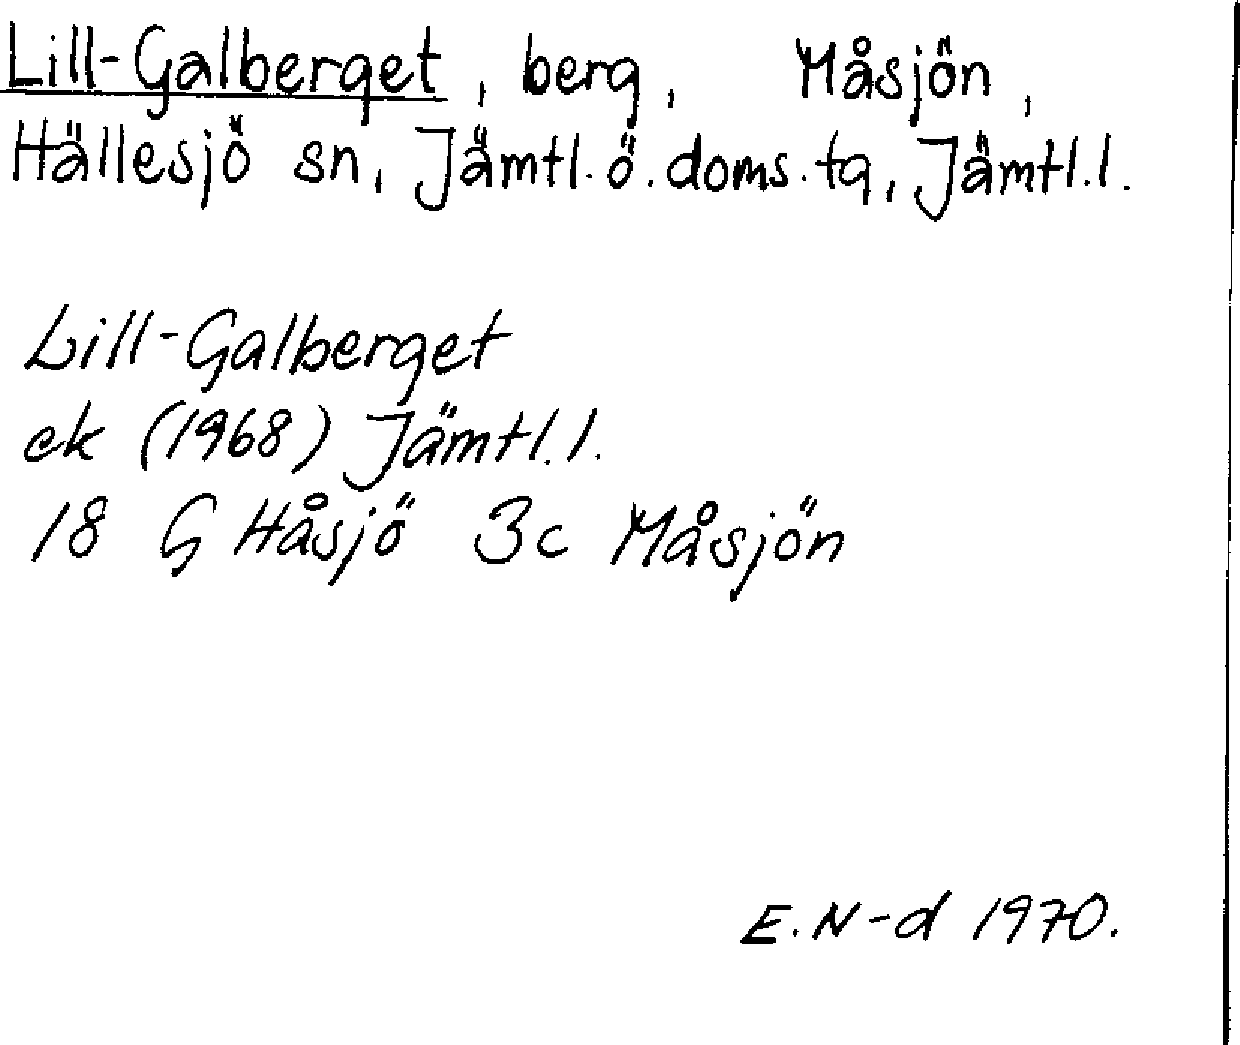 Lill-Galberget, berg, Måsjön,
Hällesjö sn, Jämtl. ö. doms. tg, Jämtl. l.
Lill-Galberget
ek (1968) Jämtl. l.
18 G Håsjö 3c Måsjön
E. N-d 1970.